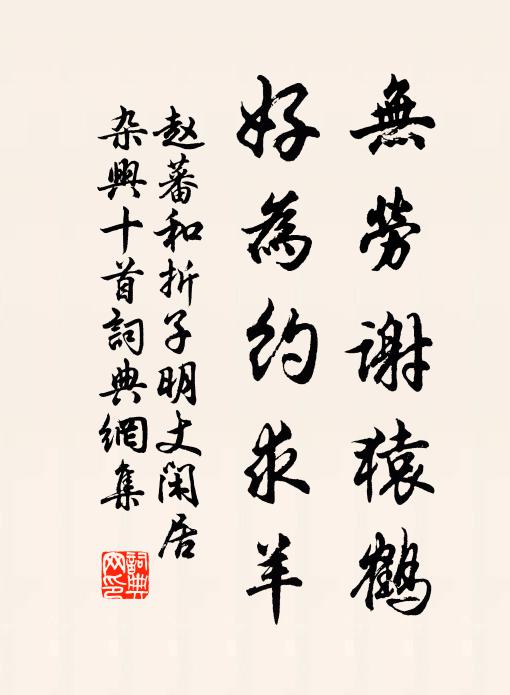 無勞謝猿鶴
好為約求羊
赵蕃和折子明丈闲居
杂興十首詞典網集
詞典網印